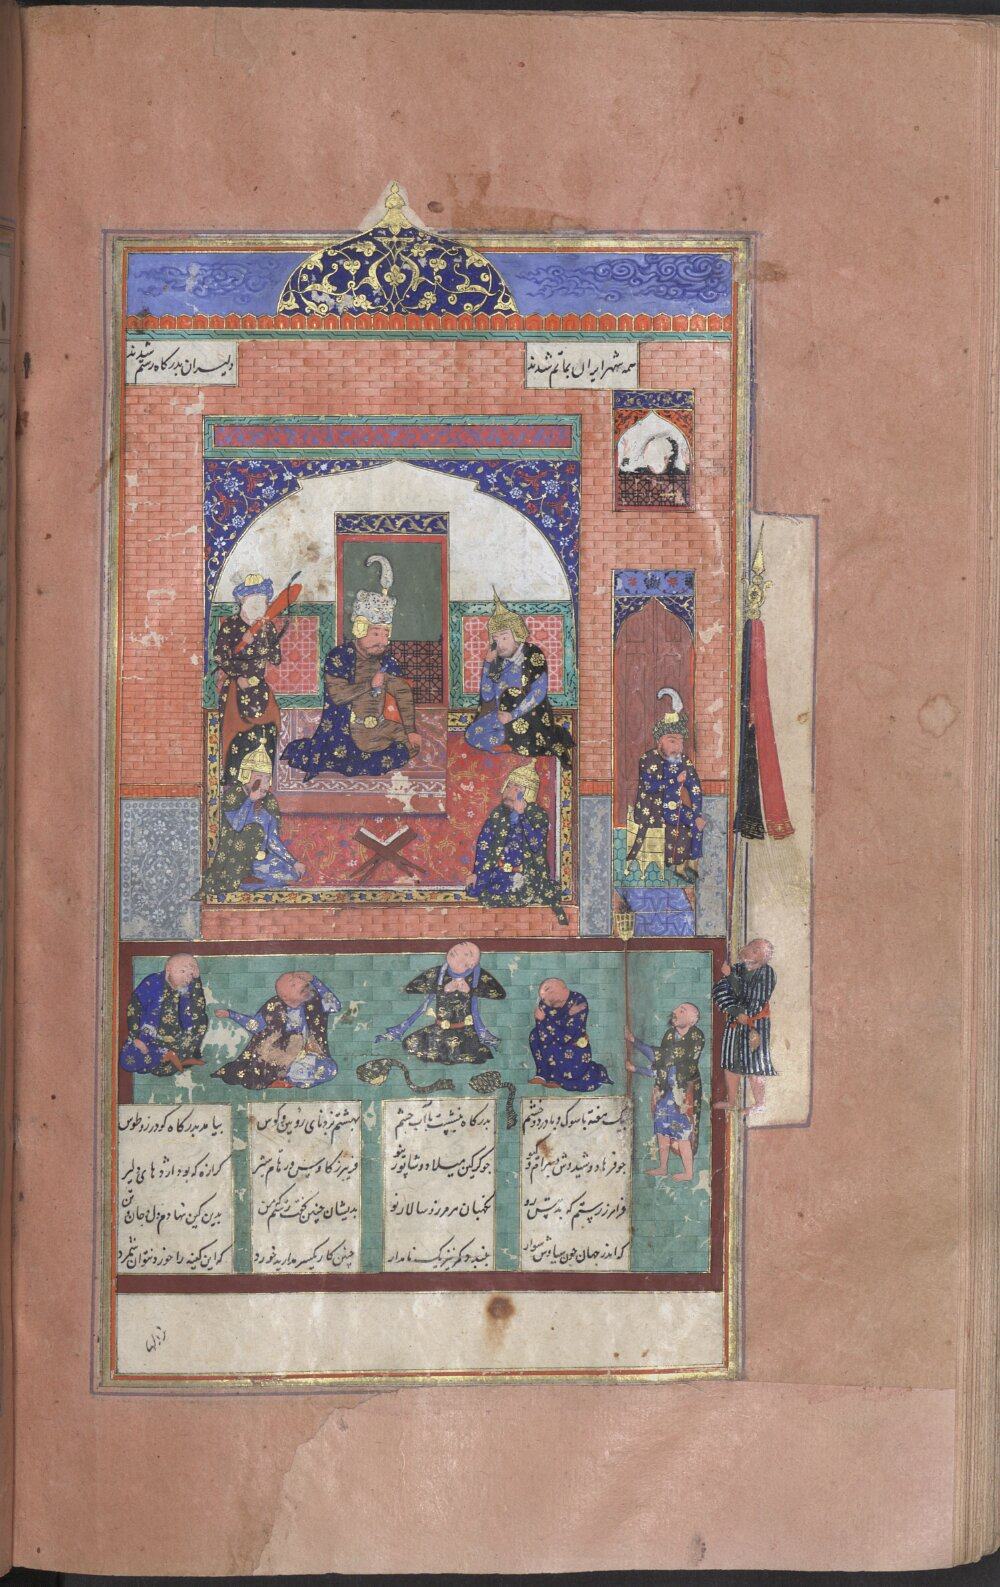 همه شهر ایران بماتم شدند
دلیران بدرگاه رستم شدند
بیک هفته با سوک و با درد و خشم
بدرگاه بنشست با آب چشم
بهشتم بزد نای رویین و کوس
بیامد بدرگاه کودرز و طوس
جو فرهاد و شیدوش و بهرام و
جو کرکین میلاد و شاپور نیو
فریبرز کاوس و رهام شیر
کرازه که بود اژدهای دلیر
فرامرز رستم که بد پیش رو
نکهبان هر مرز و سالار نو
بدیشان چنین کفت رستم که من
بدین کین نهادم دل و جان و تن
که اندر جهان جون سیاوش سوار
نبندد کمر نیز یک نامدار
چنین کار یکسر مدارید خورد
که این کینه را خورد نتوان شمرد